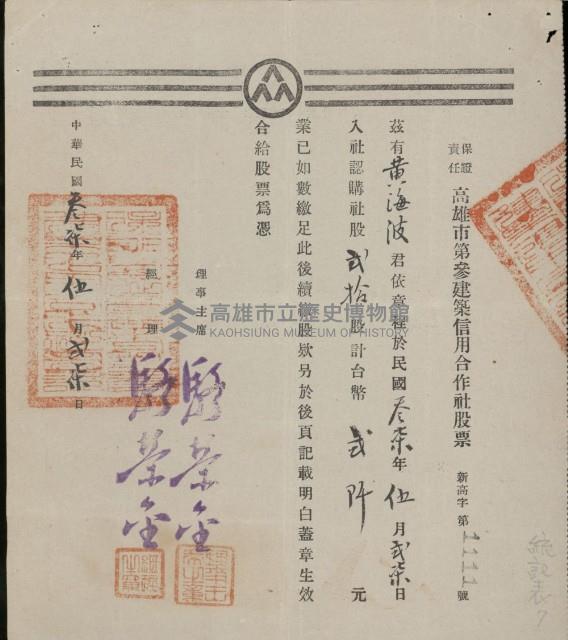 保證責任 高雄市第參建築信用合作社股票 新高字第1111號
茲有黃海波君依章程於民國叁柒年伍月貳柒日
入社認購社股貳拾股計台幣貳阡元
業已如數繳足此後續繳股欵另於後頁記載明白蓋章生效
合給股票爲憑
理事主席
經理
中華民國叁柒年伍月貳柒日
高雄市立歷史博物館
KAOHSIUNG MUSEUM OF HISTORY